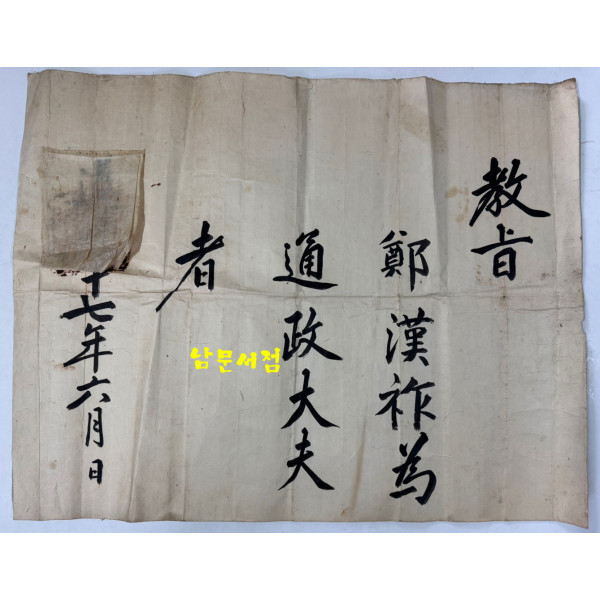 教旨
鄭漢祚為
通政大夫
者
十七年六月日
남문서점